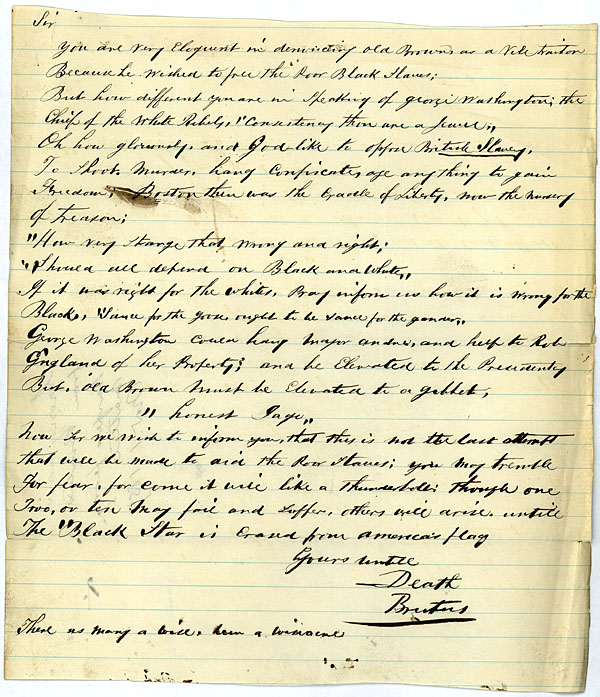 Sir
You are very Eloquent in denouncing Old Brown, as a Vile traitor
Because he wished to free the Poor Black Slaves;
But how different you are in Speaking of george Washington; the
Chief of the White Rebels, "Consistency thou are a Jewel„
Oh how gloriously, and God like to oppose British Slavery,
To Shoot, Murder, hang Confiscate, aye anything to gain
Freedom, Boston then was the Cradle of Liberty, now the nursery
of treason;
"How very strange that wrong and right;
"Should all depend on Black and White„
If it was right for the whites, Pray inform us how it is wrong for the
Blacks, Sauce for the goose ought to be Sauce for the gander„
George Washington Could hang Major andre, and help to Rob
England of her Property; and be Elevated to the Presidency
But, Old Brown Must be Elevated to a gibbet,
" honest Iago„
Now Sir we wish to inform you, that this is not the last attempt
that will be made to aid the Poor Slaves; you may tremble
for fear, for come it will like a thunderbolt; though one
Two, or ten may fail and Suffer, others will arise untill
The "Black Star is Erased from america's flag
Yours untill
Death
Brutus
There as many a wise,